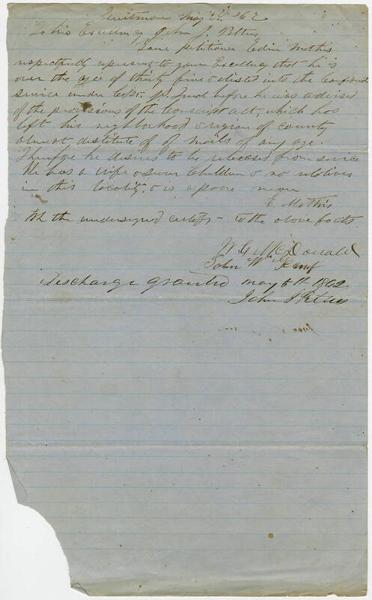 Quitman May 5th 1862
To his Excellency John J. Pettus
Your petitioner Edwin Mathis
respectfully represents to your Excellency that he is
over the age of thirty five & enlisted into the Confed
service under Capt before he was advised
of the provisions of the Conscript act, which has
left his neighborhood & region of country
almost destitute of males of any age.
Therefore he desires to be released from service
He has a wife & seven children & no relatives
in this locality & is a poor man
E. Mathis
We the undersigned certify to the above facts
W. G. McDonald
John W.
Discharge granted May 6th 1862
John J Pettus